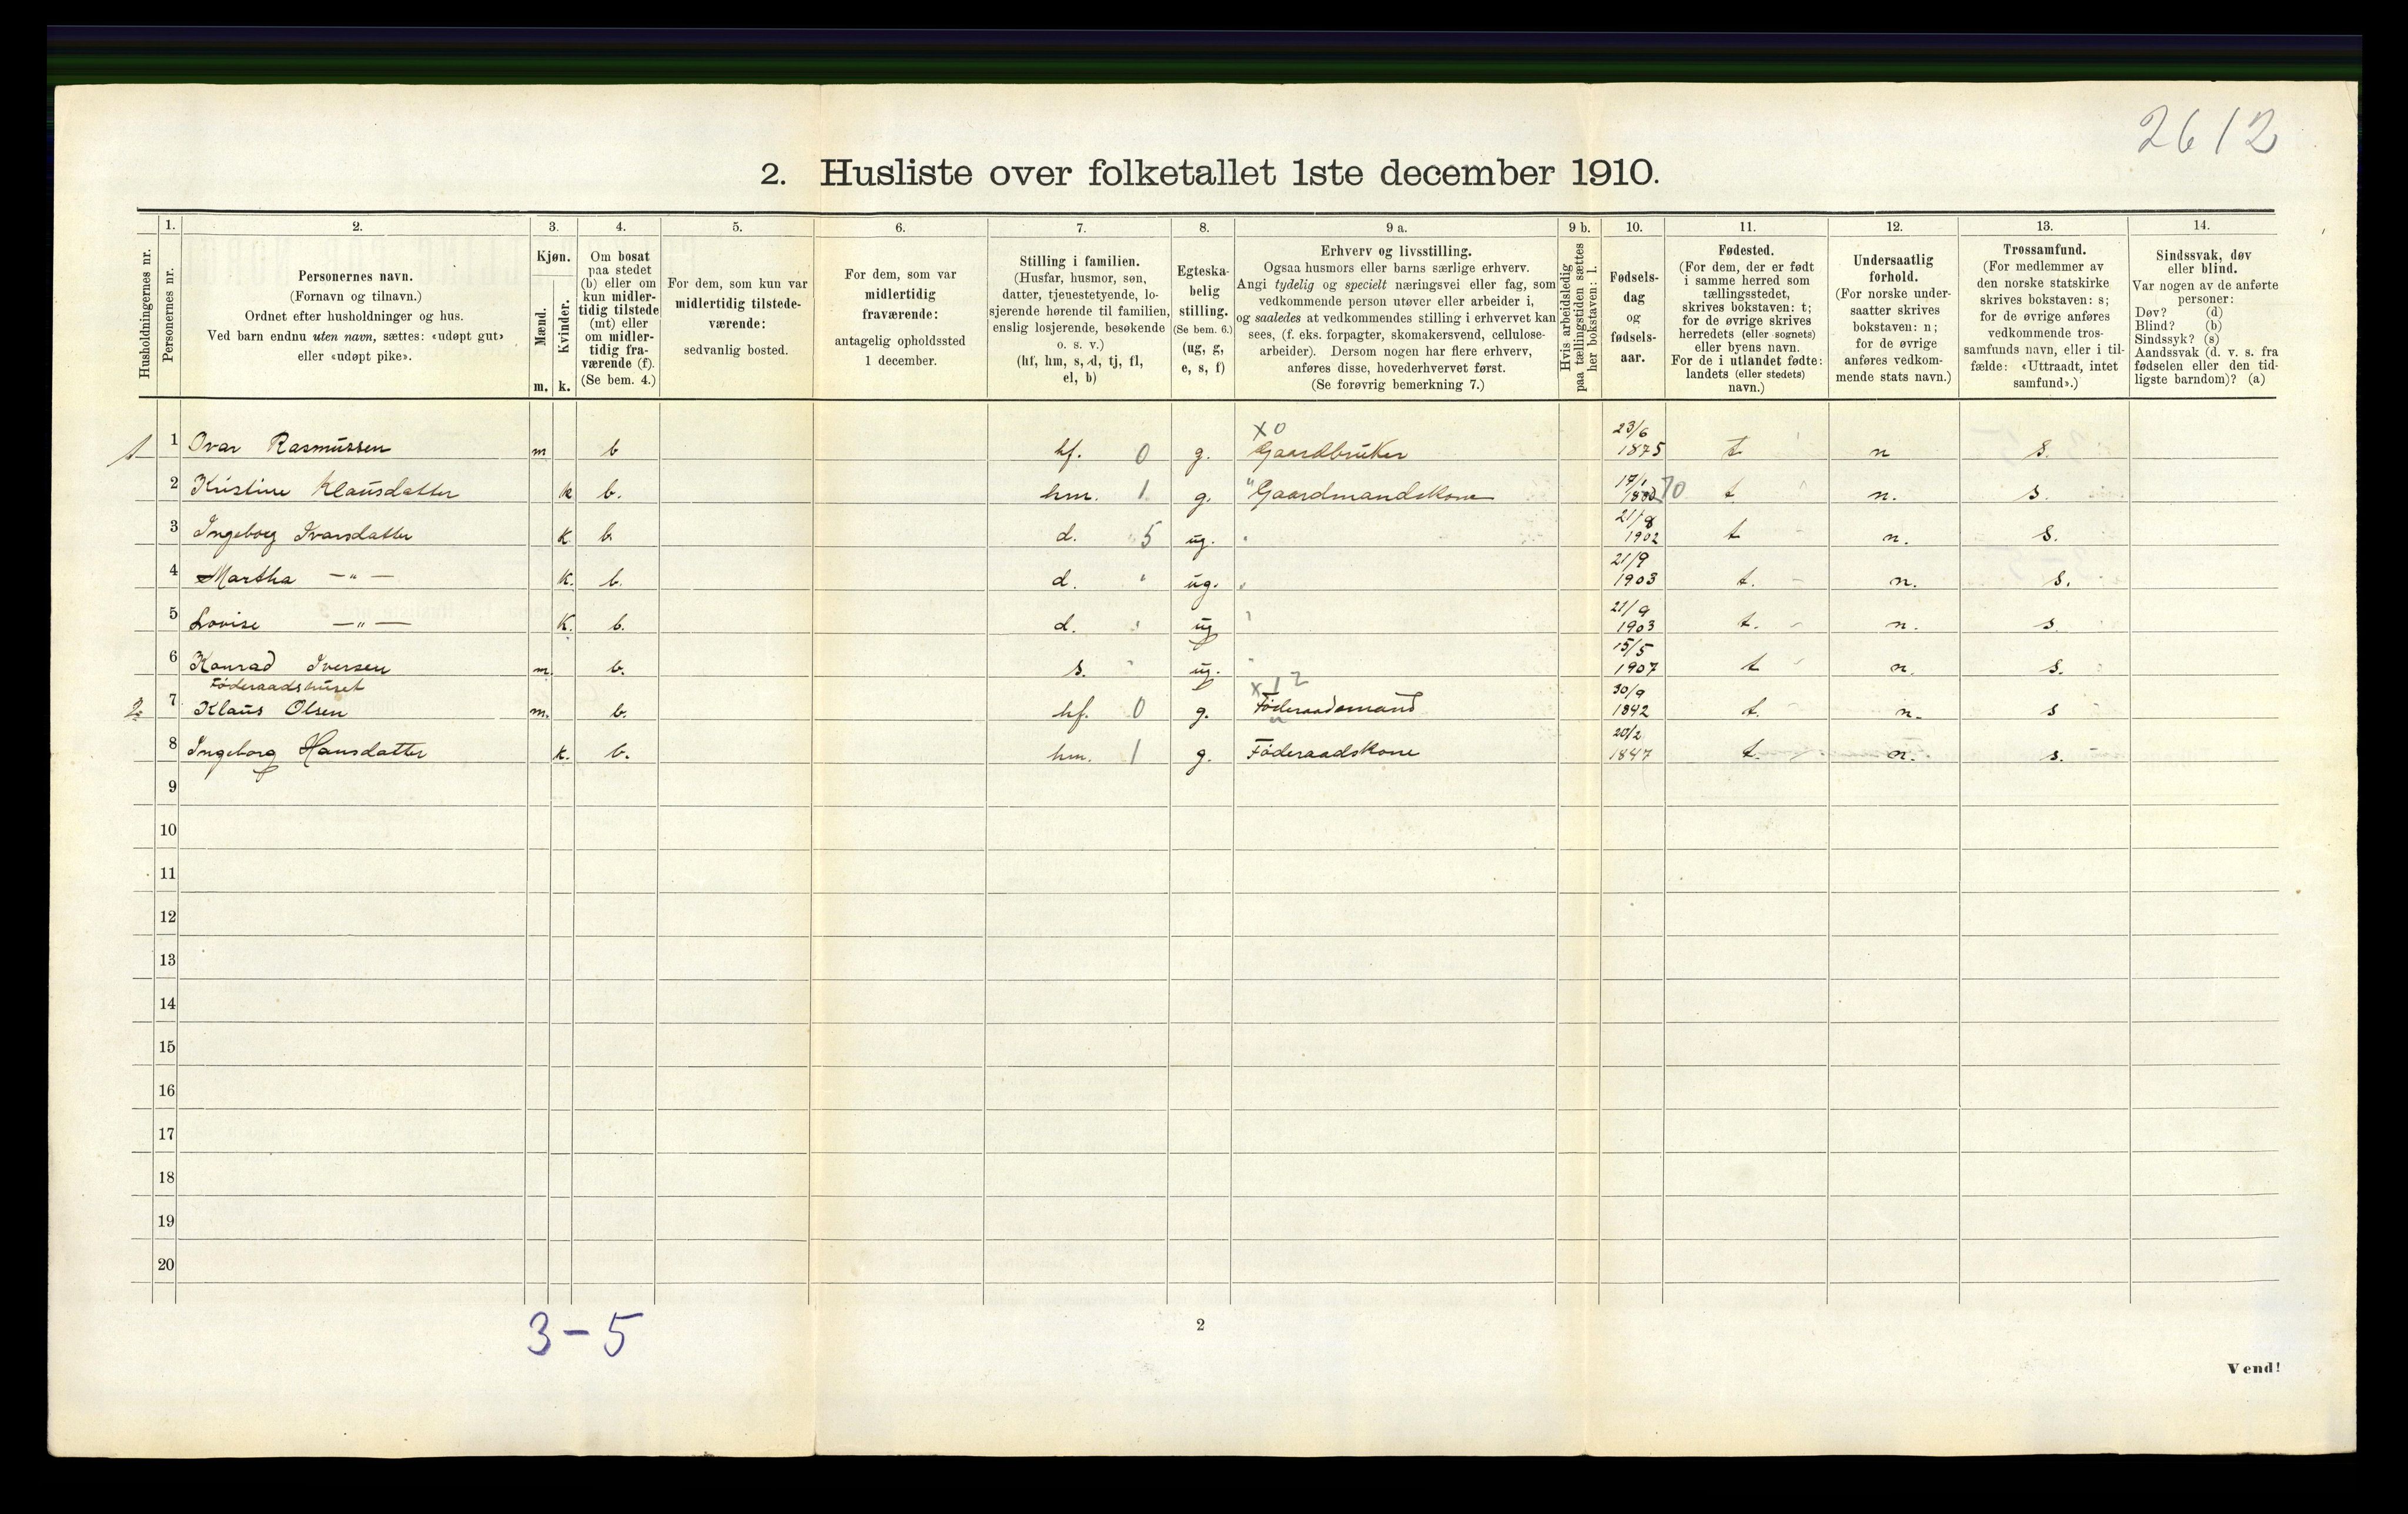 2612
2. Husliste over folketallet 1ste december 1910.
Husholdningernes nr.
1.
Personernes nr.
2.
Personernes navn.
(Fornavn og tilnavn.)
Ordnet efter husholdninger og hus.
Ved barn endnu uten navn, sættes: «udøpt gut»
eller «udøpt pike».
3.
Kjøn.
Mænd.
Kvinder.
m. k.
4.
Om bosat
paa stedet
(b) eller om
kun midler-
tidig tilstede
(mt) eller
om midler-
tidig fra-
værende (f).
(Se bem. 4.)
5.
For dem, som kun var
midlertidig tilstede-
værende:
sedvanlig bosted.
6.
For dem, som var
midlertidig
fraværende:
antagelig opholdssted
1 december.
7.
Stilling i familien.
(Husfar, husmor, søn,
datter, tjenestetyende, lo-
sjerende hørende til familien,
enslig losjerende, besøkende
o. s. v.)
(hf, hm, s, d, tj, fl,
el, b)
8.
Egteska-
belig
stilling.
(Se bem. 6.)
(ug, g,
e, s, f)
9 a.
Erhverv og livsstilling.
Ogsaa husmors eller barns særlige erhverv.
Angi tydelig og specielt næringsvei eller fag, som
vedkommende person utøver eller arbeider i,
og saaledes at vedkommendes stilling i erhvervet kan
sees, (f. eks. forpagter, skomakersvend, cellulose-
arbeider). Dersom nogen har flere erhverv,
anføres disse, hovederhvervet først.
(Se forøvrig bemerkning 7.)
9 b.
Hvis arbeidsledig
paa tællingstiden sættes
her bokstaven: l.
10.
Fødsels-
dag
og
fødsels-
aar.
11.
Fødested.
(For dem, der er født
i samme herred som
tællingsstedet,
skrives bokstaven: t;
for de øvrige skrives
herredets (eller sognets)
eller byens navn.
For de i utlandet fødte:
landets (eller stedets)
navn.)
12.
Undersaatlig
forhold.
(For norske under-
saatter skrives
bokstaven: n;
for de øvrige
anføres vedkom-
mende stats navn.)
13.
Trossamfund.
(For medlemmer av
den norske statskirke
skrives bokstaven: s;
for de øvrige anføres
vedkommende tros-
samfunds navn, eller i til-
fælde: «Uttraadt, intet
samfund».)
14.
Sindssvak, døv
eller blind.
Var nogen av de anførte
personer:
Døv? (d)
Blind? (b)
Sindssyk? (s)
Aandssvak (d. v. s. fra
fødselen eller den tid-
ligste barndom)? (a)
1 1 Ivar Rasmussen m b hf. 0 g. x0 Gaardbruker 23/6 1875 t n s.
2 Kristine Klausdatter k b. hm. 1 g. " Gaardmandskone 17/1 70 t n. s.
3 Ingeborg Ivarsdatter k b. d. 5 ug. 21/8 1902 t n. s.
4 Martha —"— k. b. d. " ug. 21/9 1903 t. n. s.
5 Lovise —"— k. b. d. " ug 21/9 1903 t. n. s.
6 Konrad Iversen m. b. s. " ug. 15/5 1907 t n. s.
Føderaadshuset
2 7 Klaus Olsen m. b. hf. 0 g. x 12 Føderaadsmand 30/9 1842 t. n. s
8 Ingeborg Hansdatter k. b. hm. 1 g. " Føderaadskone 20/2 1847 t. n. s.
9
10
11
12
13
14
15
16
17
18
19
20
3-5
2
Vend!